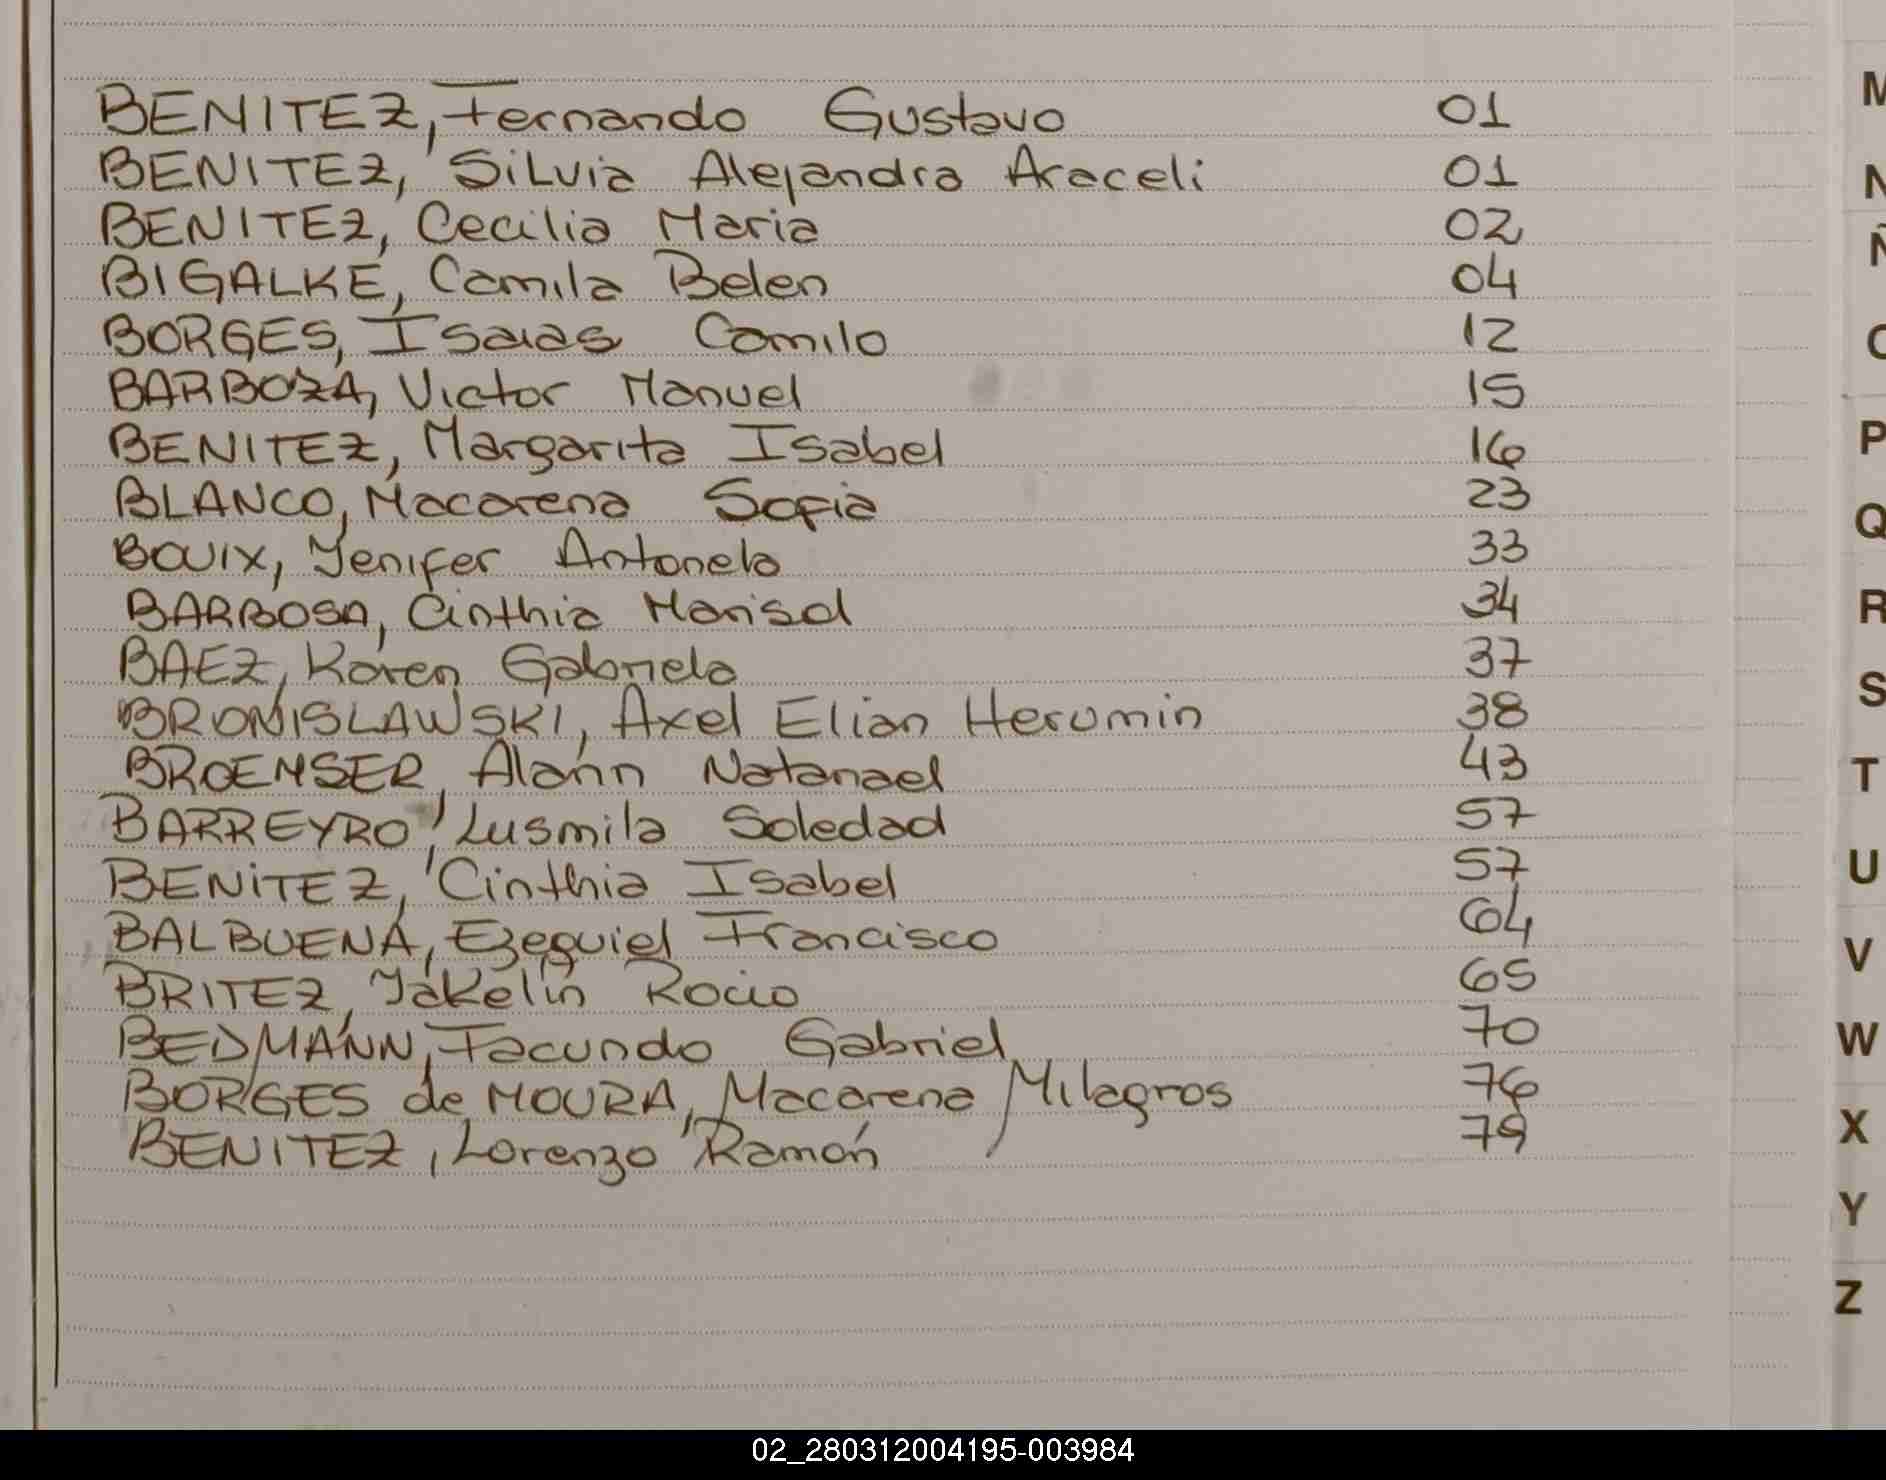 BENITEZ, Fernando Gustavo 01
BENITEZ, Silvia Alejandra Araceli 01
BENITEZ, Cecilia Maria 02
BIGALKE, Camila Belen 04
BORGES, Isaias Camilo 12
BARBOZA, Victor Manuel 15
BENITEZ, Margarita Isabel 16
BLANCO, Macarena Sofia 23
BOUIX, Yenifer Antonela 33
BARBOSA, Cinthia Marisol 34
BAEZ, Karen Gabriela 37
BRONISLAWSKI, Axel Elian Herumin 38
BROEMSER, Alann Natanael 43
BARREYRO, Lusmila Soledad 57
BENITEZ, Cinthia Isabel 57
BALBUENA, Ezequiel Francisco 64
BRITEZ, Yakelin Rocio 65
BEDMANN, Facundo Gabriel 70
BORGES de MOURA, Macarena Milagros 76
BENITEZ, Lorenzo Ramón 79
M
N
Ñ
O
P
Q
R
S
T
U
V
W
X
Y
Z
02_280312004195-003984